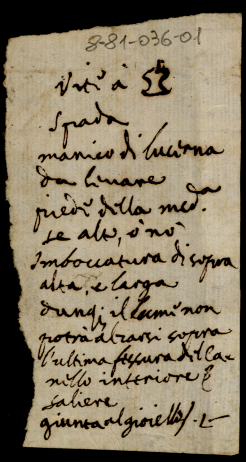 8-81-036-01
Vite à
Spada
manico di lucerna
da levare
piede della med.da
se alto, ò nò
Imboccatura di sopra
alta, e larga
dunq; il lume non
potrà alzarsi sopra
l'ultima fessura dell'a-
nello interiore
saliere
giunta al gioiello